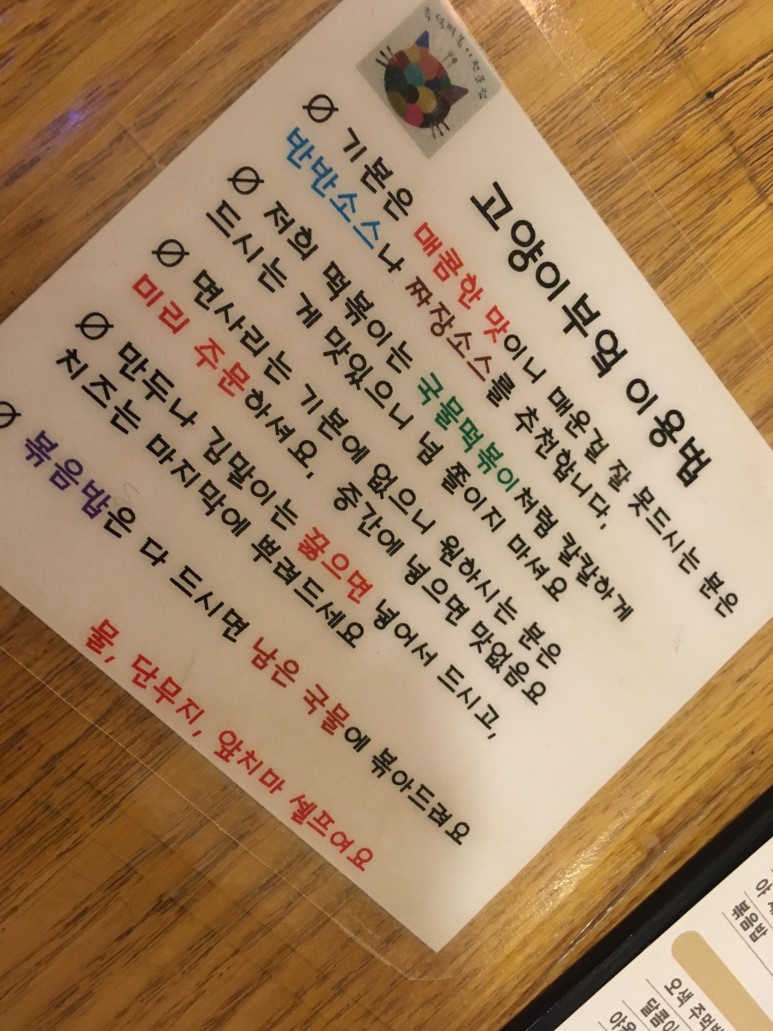 즉석떡볶이전문점
고양이부엌 이용법
∅ 기본은 매콤한 맛이니 매운걸 잘 못드시는 분은
반반소스나 짜장소스를 추천합니다.
∅ 저희 떡볶이는 국물떡볶이처럼 칼칼하게
드시는 게 맛있으니 넘 쫄이지 마셔요
∅ 면사리는 기본에 없으니 원하시는 분은
미리 주문하셔요, 중간에 넣으면 맛없음요
∅ 만두나 김말이는 끓으면 넣어서 드시고,
치즈는 마지막에 뿌려드세요
∅ 볶음밥은 다 드시면 남은 국물에 볶아드려요
물, 단무지, 앞치마 셀프여요
볶음밥
오색 주먹밥